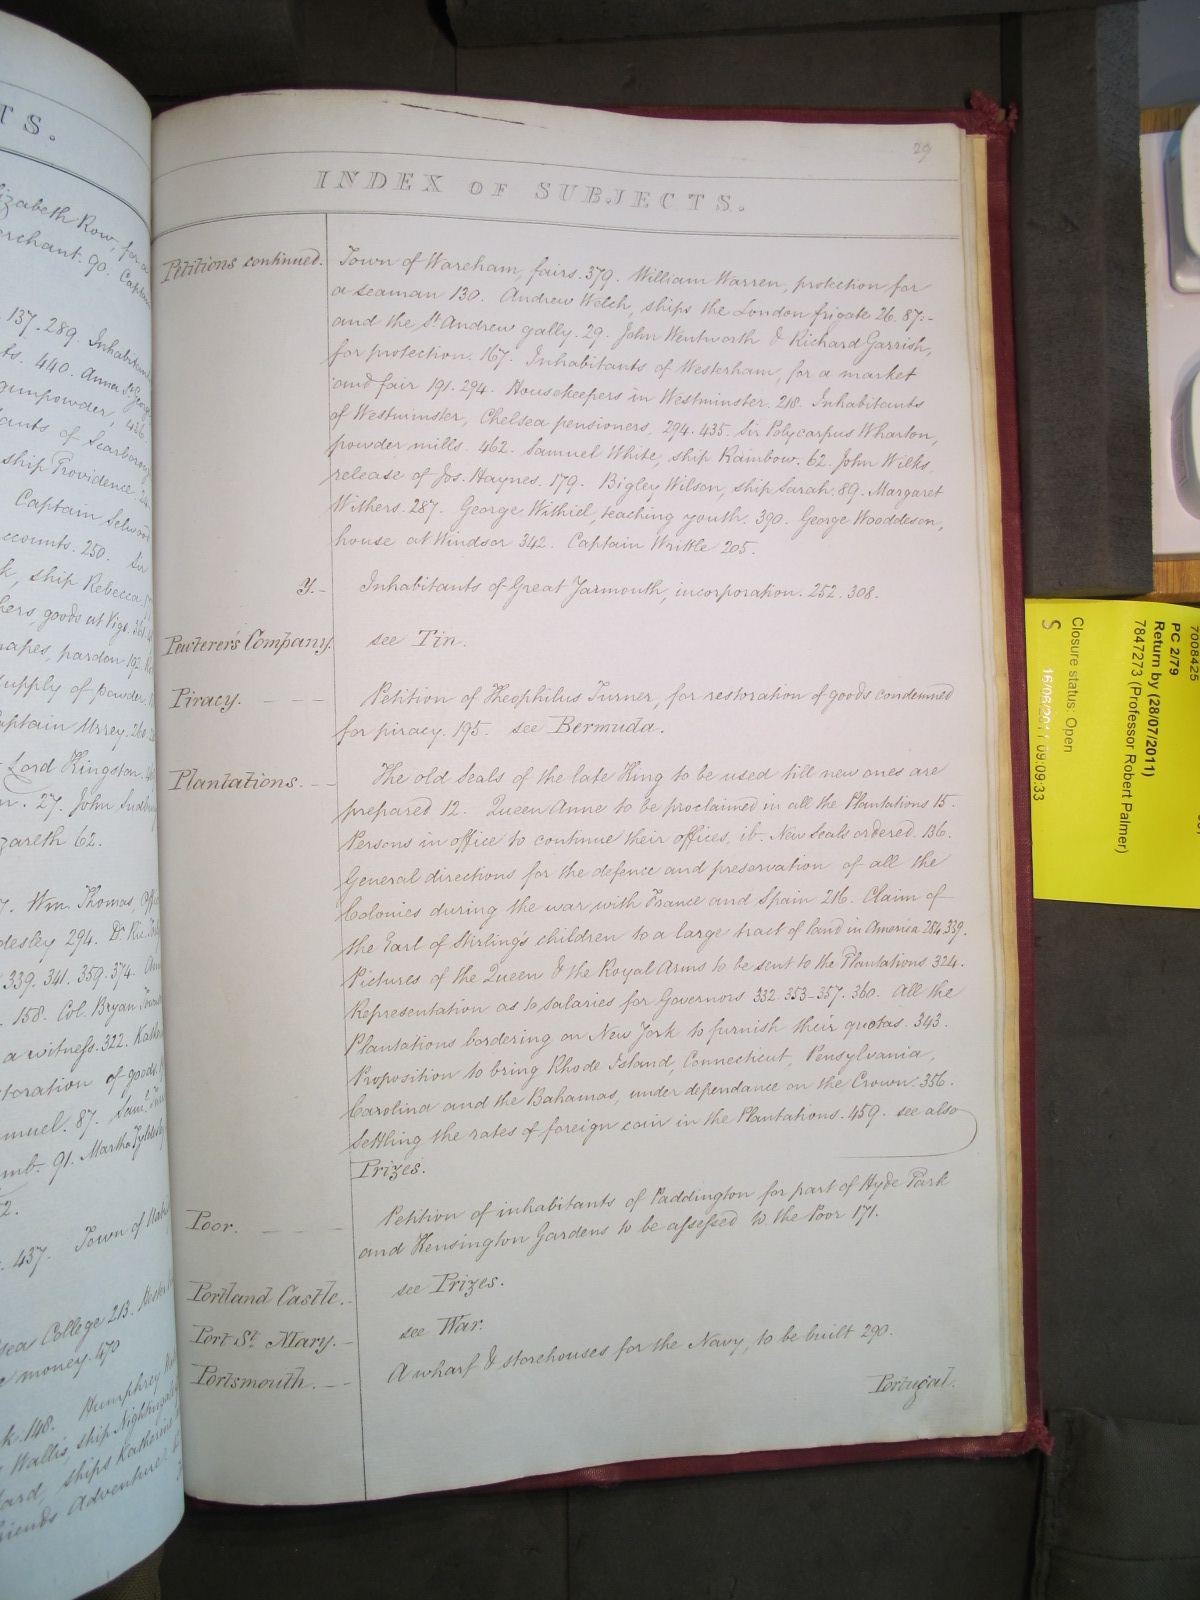 TS.
izabeth Row, for a
erchant. 90. Capt
. 137. 289. Inhabitants
ts. 440. Anna
gunpowder, 426
ants of Scarborough
ship Providence
Captain
ccounts. 250. Sir
k, ship Rebecca
hers, goods at Vigo. 361
apes, pardon 192.
supply of powder,
aptain Urrey. 260
Lord Kingston
n. 27. John
zareth 62.
7. Wm. Thomas,
desley 294. Dr.
339. 341. 359. 374.
. 158. Col. Bryan
a witness. 322.
toration of goods
muel. 87. Saml.
mb. 91. Martha
2.
. 437. Town of
sea College 213.
money. 470
k. 148. Humphrey
Wallis, ship Nightingale
ard, ships Katherine
riends Adventure.
29
INDEX OF SUBJECTS.
Petitions continued. Town of Wareham, fairs. 379. William Warren, protection for
a seaman 130. Andrew Welch, ships the London frigate 26. 87:-
and the St. Andrew gally. 29. John Wentworth & Richard Garrish,
for protection. 167. Inhabitants of Westerham, for a market
and fair 191. 294. Housekeepers in Westminster. 218. Inhabitants
of Westminster, Chelsea pensioners, 294. 435. Sir Polycarpus Wharton,
powder mills. 462. Samuel White, ship Rainbow. 62. John Wilks,
release of Jos. Haynes. 179. Bigley Wilson, ship Sarah. 89. Margaret
Withers. 287. George Withiel, teaching youth. 390. George Wooddeson,
house at Windsor 342. Captain Writtle 205.
Y.- Inhabitants of Great Yarmouth, incorporation. 252. 308.
Pewterer's Company. see Tin.
Piracy. — — Petition of Theophilus Turner, for restoration of goods condemned
for piracy. 195. see Bermuda.
Plantations. — The old Seals of the late King to be used till new ones are
prepared 12. Queen Anne to be proclaimed in all the Plantations 15.
Persons in office to continue their offices, ib. New Seals ordered. 136.
General directions for the defence and preservation of all the
Colonies during the war with France and Spain 216. Claim of
the Earl of Stirling's children to a large tract of land in America 284. 339.
Pictures of the Queen & the Royal Arms to be sent to the Plantations 324.
Representation as to salaries for Governors 332. 353-357. 360. All the
Plantations bordering on New York to furnish their quotas. 343.
Proposition to bring Rhode Island, Connecticut, Pensylvania,
Carolina and the Bahamas, under dependance on the Crown. 356.
Settling the rates of foreign coin in the Plantations. 459. see also
Prizes.
Poor. — — Petition of inhabitants of Paddington for part of Hyde Park
and Kensington Gardens to be assessed to the Poor 171.
Portland Castle. - see Prizes.
Port St. Mary. - see War.
Portsmouth. — A wharf & storehouses for the Navy, to be built 290.
Portugal.
7008425
PC 2/79
Return by (28/07/2011)
7847273 (Professor Robert Palmer)
Closure status: Open
S 16/06/2011 09:09:33